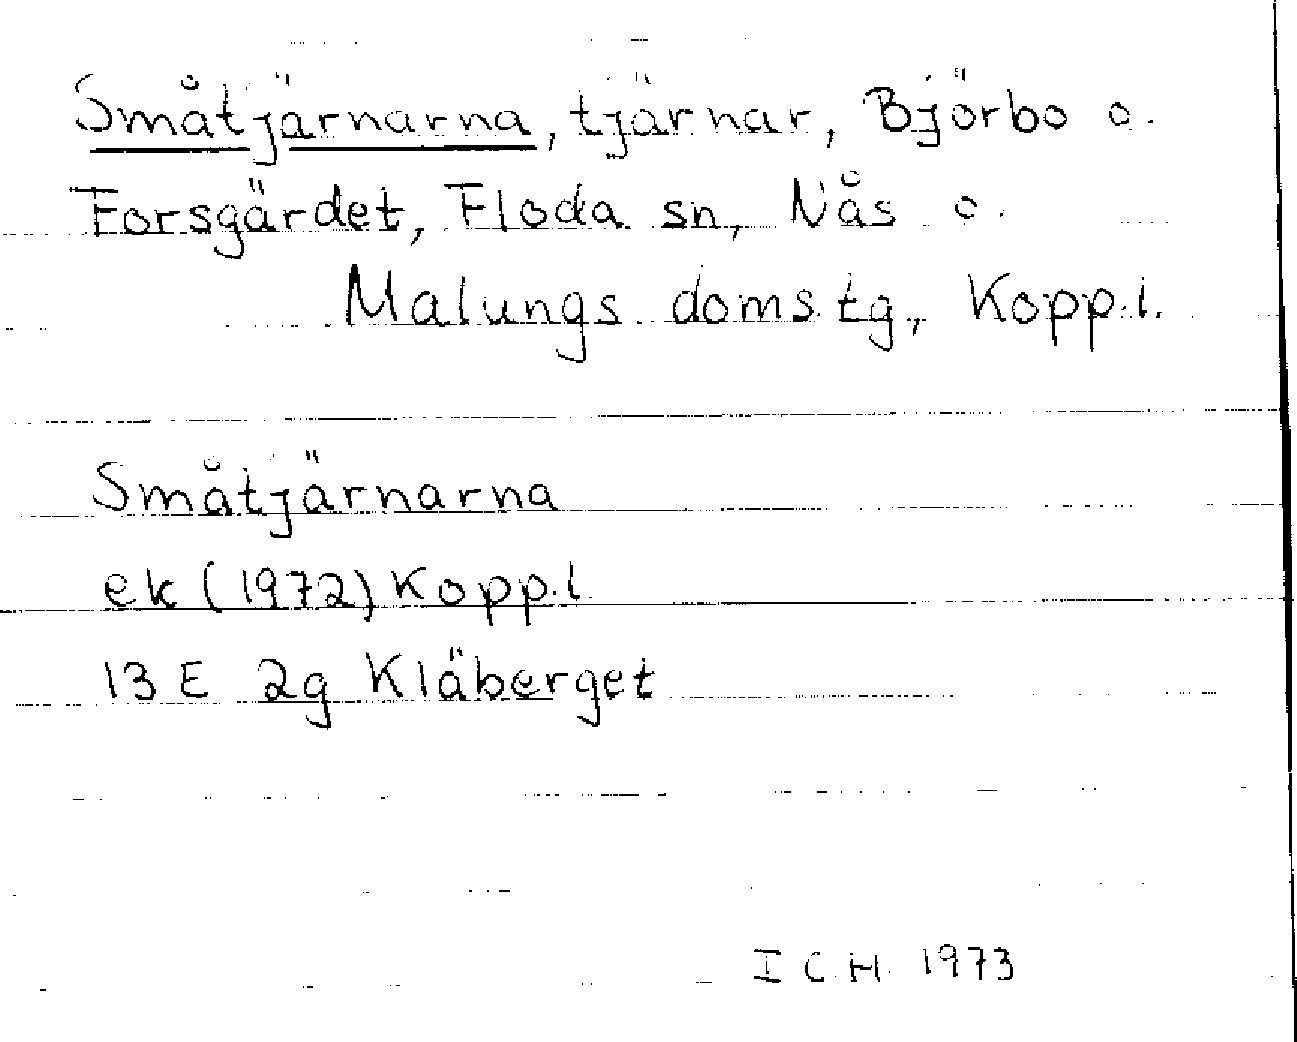 Småtjärnarna, tjärnar, Björbo o.
Forsgärdet, Floda sn, Nås o.
Malungs domstg, Kopp.l.
Småtjärnarna
ek (1972) Kopp.l
13 E 2g Kläberget
I C H 1973